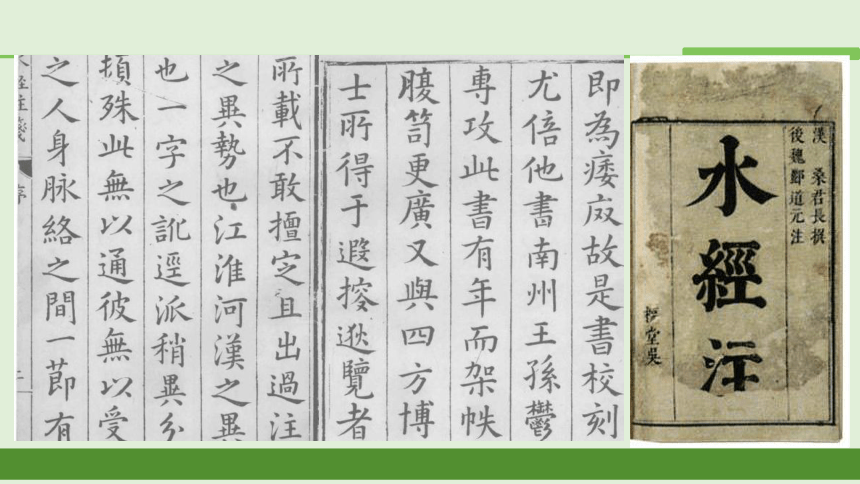 即為痿故是書校刻
尤倍他書南州王孫鬱
專攻此書有年而架帙
腹笥更廣又與四方博
士所得于遐搜逖覽者
所載不敢擅定且出過注
之異勢也江淮河漢之異
也一字之訛逕派稍異分
頓殊此無以通彼無以受
之人身脉絡之間一節有
水經注箋 序
漢 桑君長撰
後魏酈道元注
水經注
堂吳